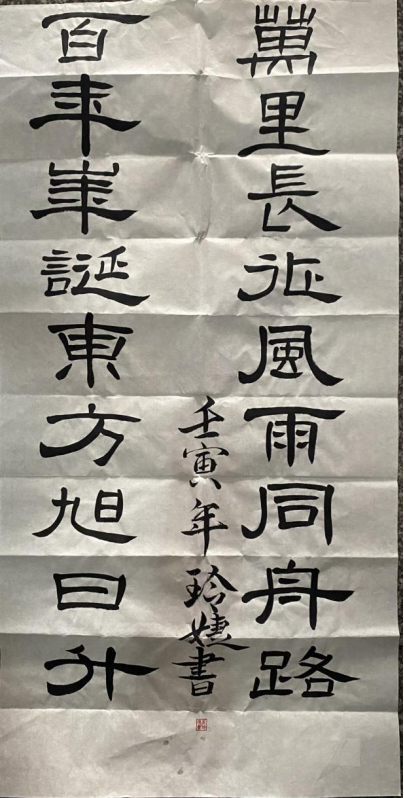 萬里長征風雨同舟路
百年華誕東方旭日升
壬寅年玲書